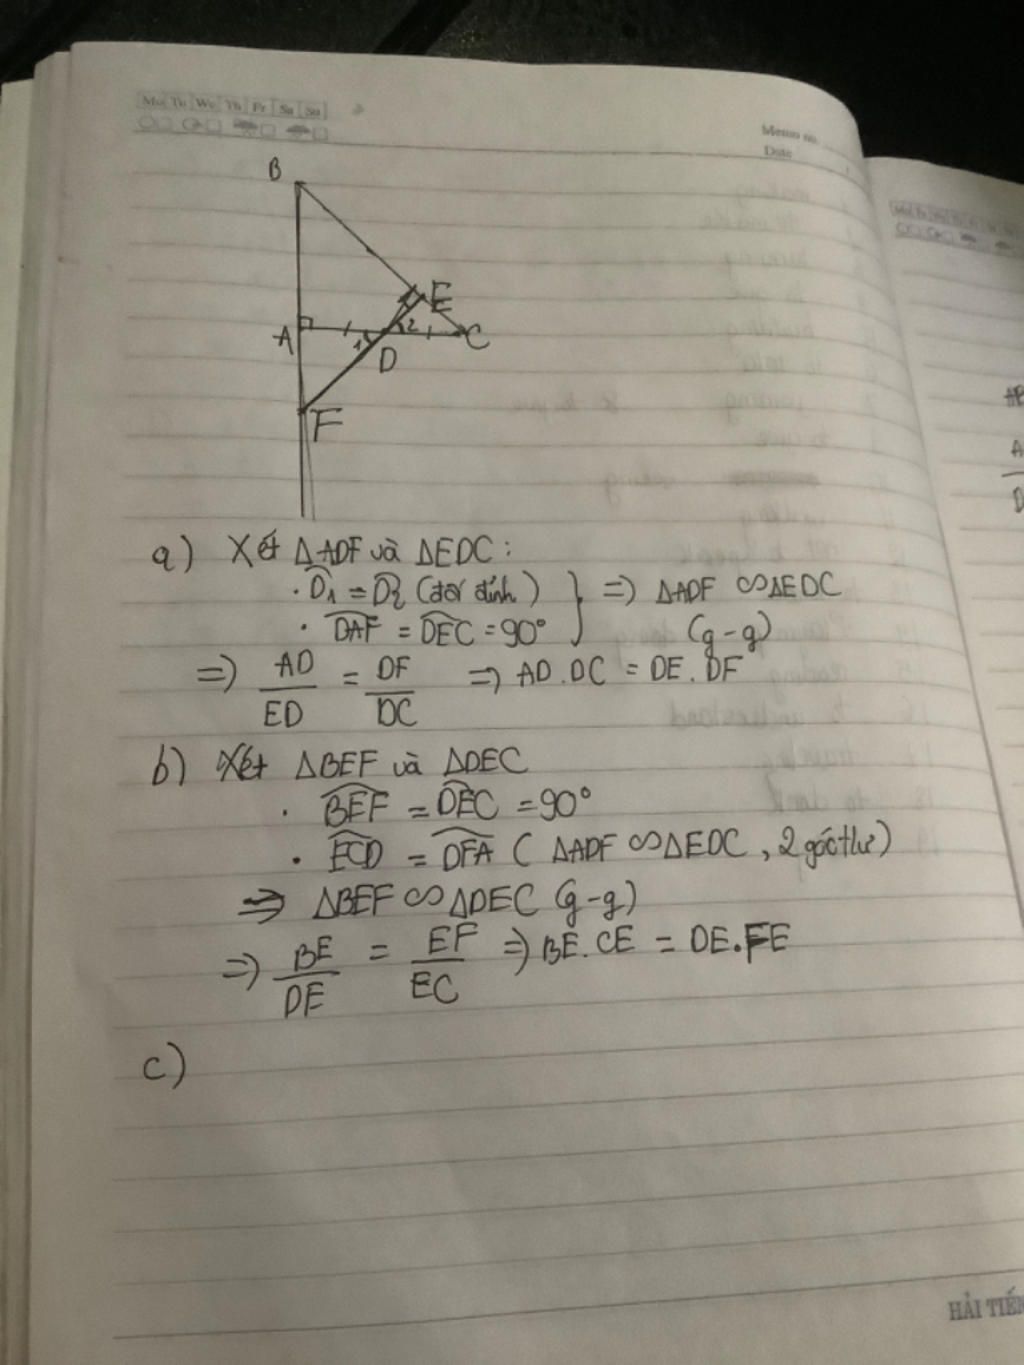 Mo Tu We Th Fr Sa Su
Memo no.
Date
B
E
A
1 2
C
D
F
a) Xét ΔADF và ΔEDC :
· D̂1 = D̂2 (đối đỉnh) } => ΔADF ∽ ΔEDC
· DAF = DEC = 90° (g-g)
=> AD/ED = DF/DC => AD.DC = DE.DF
b) Xét ΔBEF và ΔDEC
· BEF = DEC = 90°
· ECD = DFA ( ΔADF ∽ ΔEDC, 2 góc t/ư)
=> ΔBEF ∽ ΔDEC (g-g)
=> BE/DE = EF/EC => BE.CE = DE.FE
c)
HẢI TIẾN